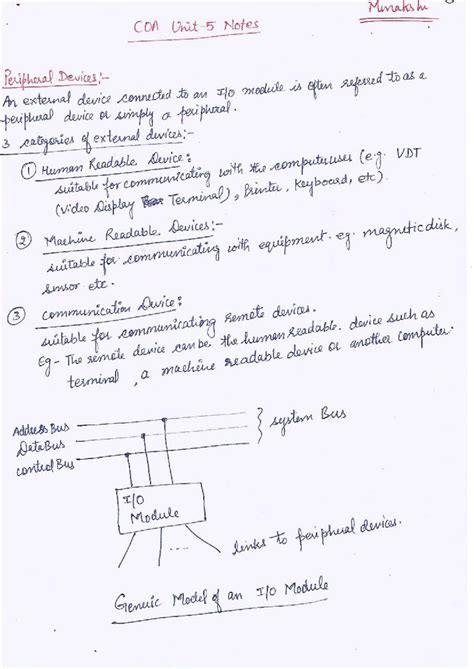 Minakshi
COA Unit-5 Notes
Peripheral Devices:-
An external device connected to an I/O module is often referred to as a
peripheral device or simply a peripheral.
3 categories of external devices:-
① Human Readable Device:
suitable for communicating with the computer user (e.g. VDT
(Video Display Terminal), Printer, Keyboard, etc).
② Machine Readable Devices:-
suitable for communicating with equipment. eg. magnetic disk,
sensor etc.
③ Communication Device:
suitable for communicating remote devices.
Eg- The remote device can be the human readable device such as
terminal, a machine readable device or another computer.
Address Bus
Data Bus
control Bus
system Bus
I/O
Module
links to peripheral devices.
Generic Model of an I/O Module